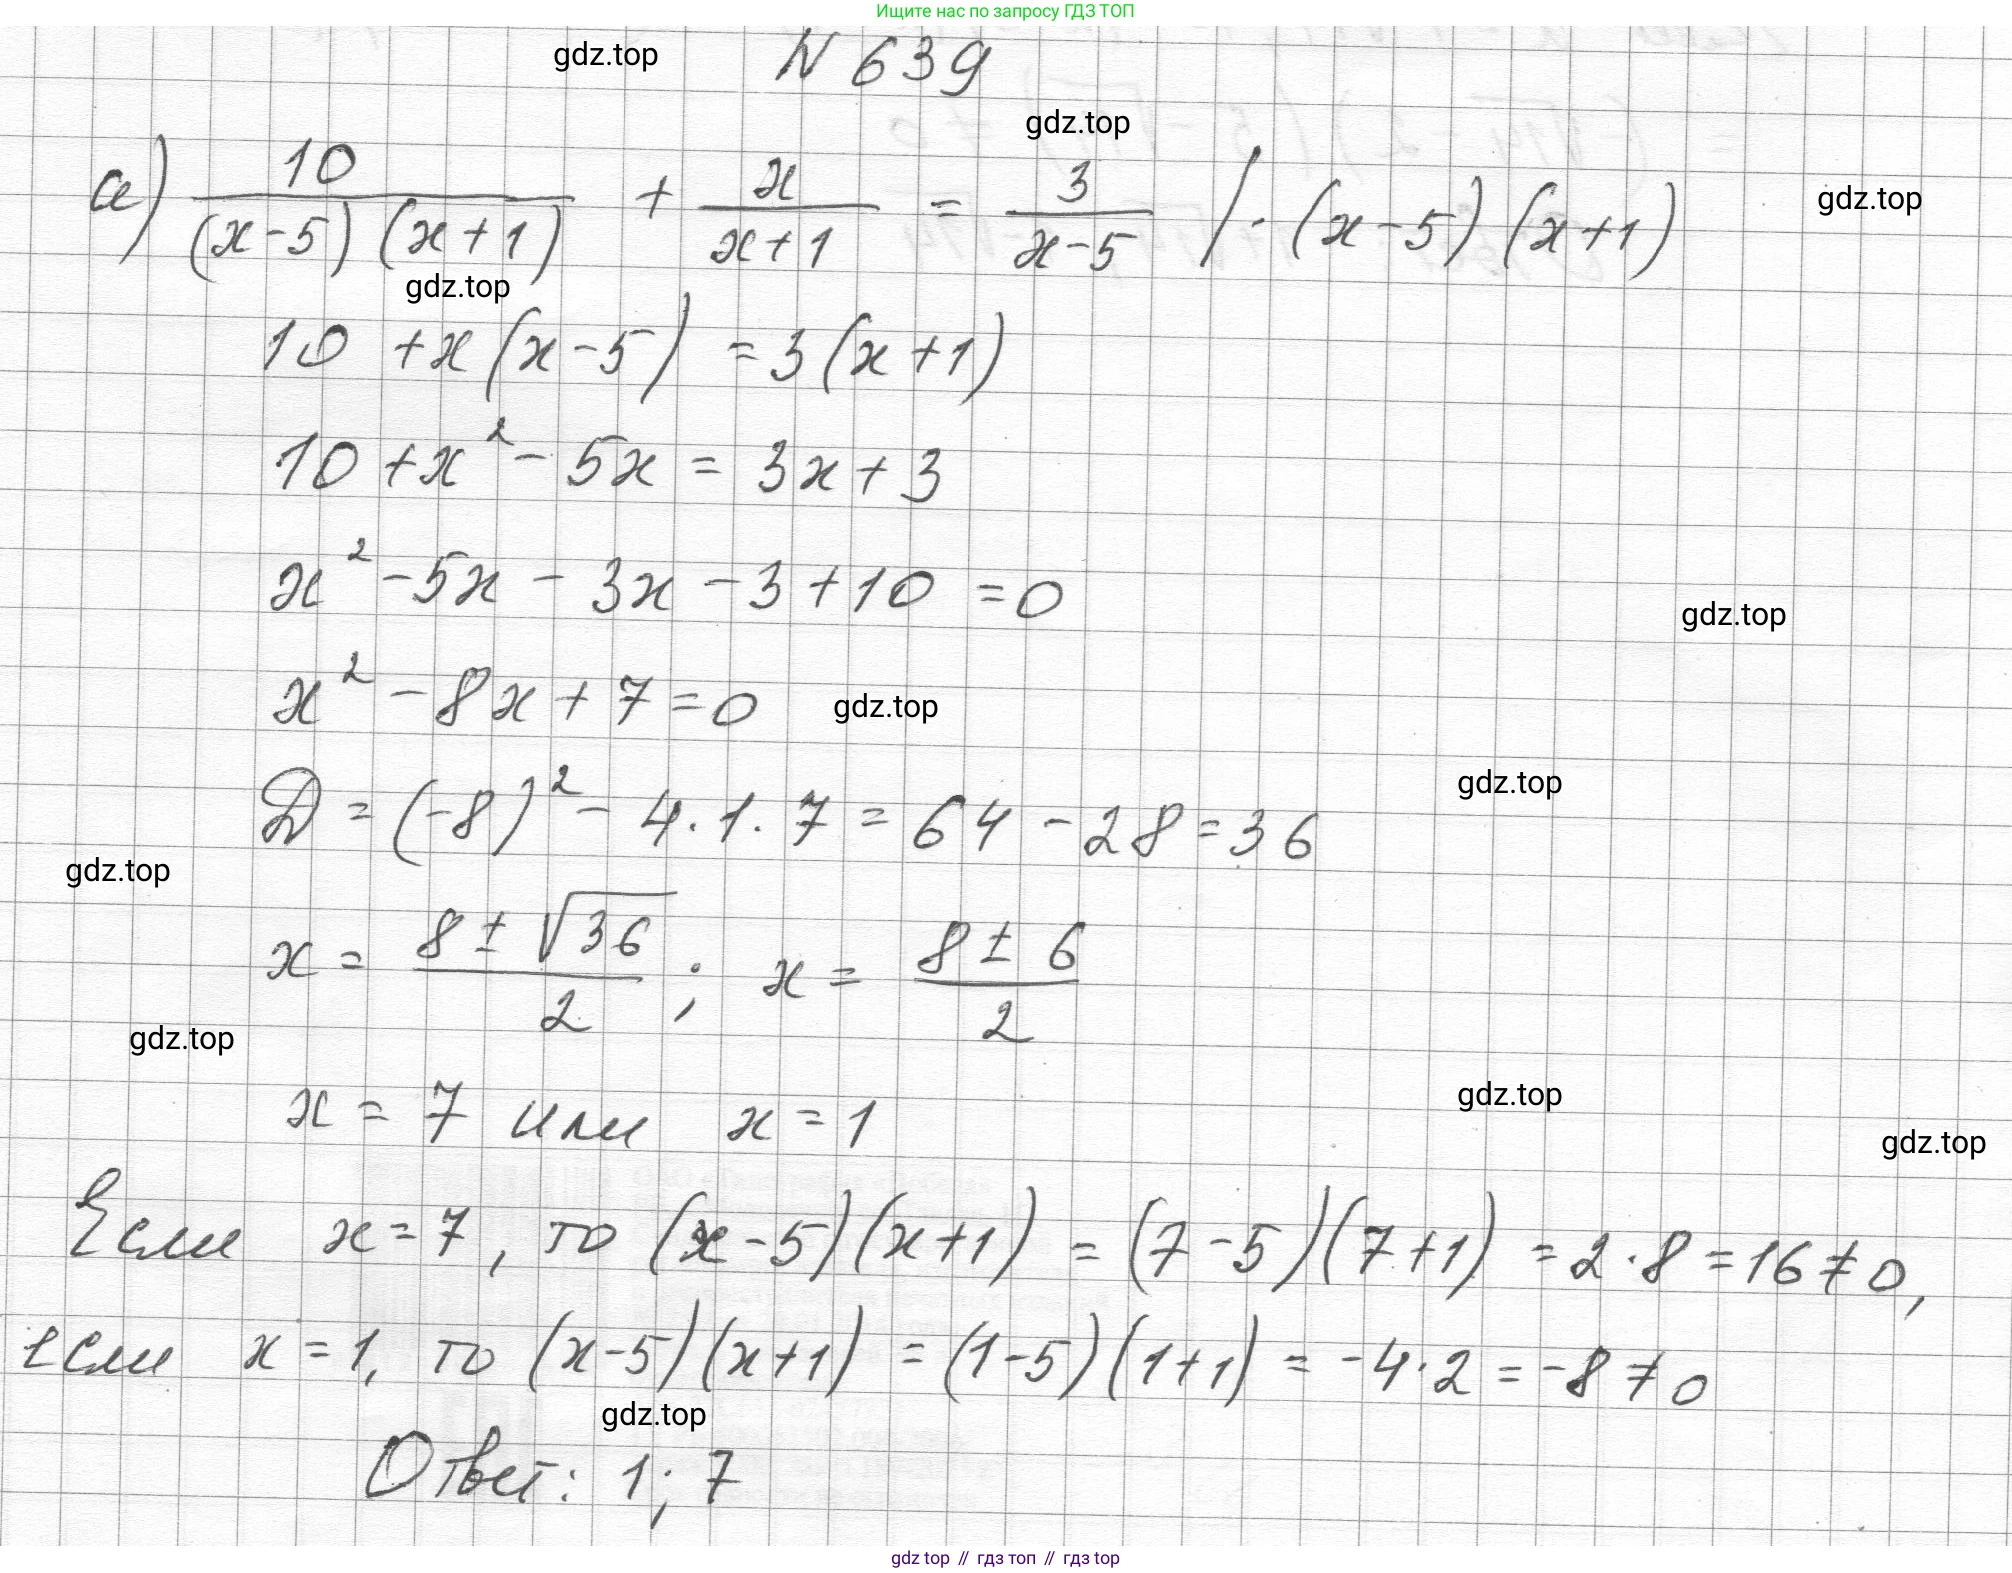 Ищите нас по запросу ГДЗ ТОП
gdz.top
N 639
gdz.top
а) 10/((x-5)(x+1)) + x/(x+1) = 3/(x-5) / · (x-5)(x+1)
gdz.top
gdz.top
10 + x(x-5) = 3(x+1)
10 + x² - 5x = 3x + 3
x² - 5x - 3x - 3 + 10 = 0
gdz.top
x² - 8x + 7 = 0
gdz.top
gdz.top
D = (-8)² - 4·1·7 = 64 - 28 = 36
gdz.top
x = (8 ± √36)/2 ; x = (8 ± 6)/2
gdz.top
x = 7 или x = 1
gdz.top
gdz.top
Если x = 7, то (x-5)(x+1) = (7-5)(7+1) = 2·8 = 16 ≠ 0,
если x = 1, то (x-5)(x+1) = (1-5)(1+1) = -4·2 = -8 ≠ 0
gdz.top
Ответ: 1; 7
gdz top // гдз топ // гдз top